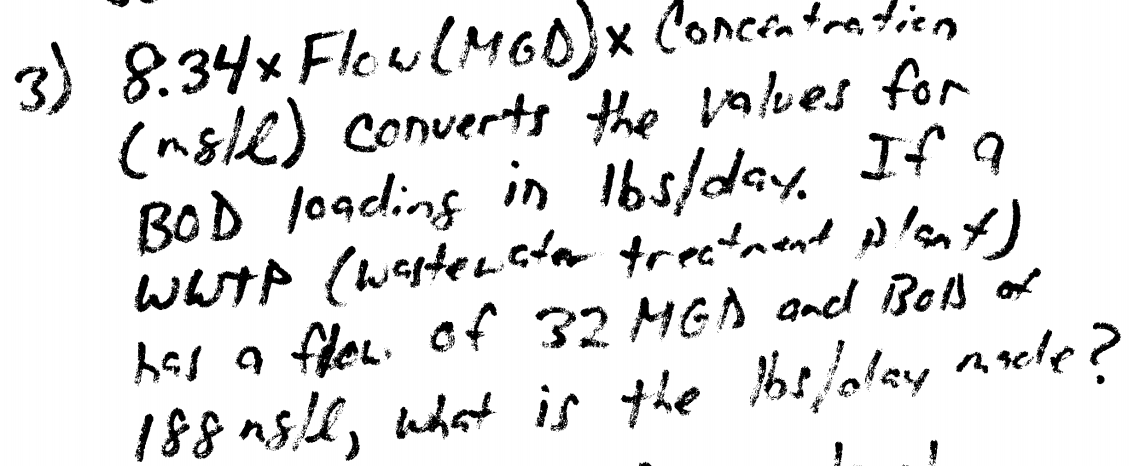 3) 8.34 x Flow (MGD) x Concentration
(mg/l) converts the values for
BOD loading in lbs/day. If a
WWTP (wastewater treatment plant)
has a flow of 32 MGD and BOD of
188 mg/l, what is the lbs/day made?